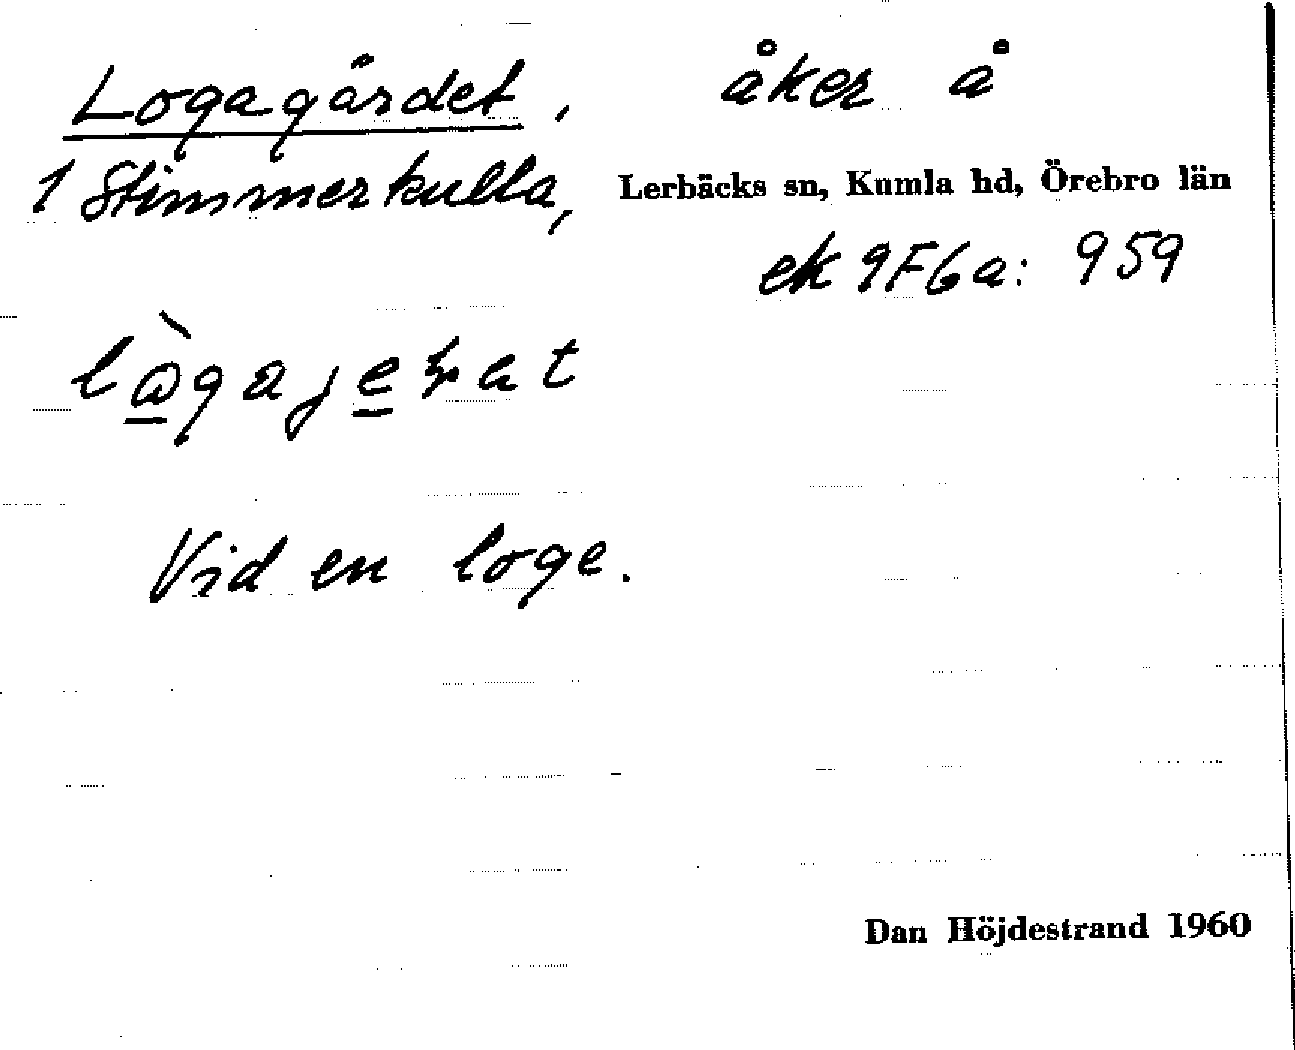 Logagärdet, åker å
1 Stimmerkulla, Lerbäcks sn, Kumla hd, Örebro län
ek 9F6a: 959
Vid en loge.
Dan Höjdestrand 1960